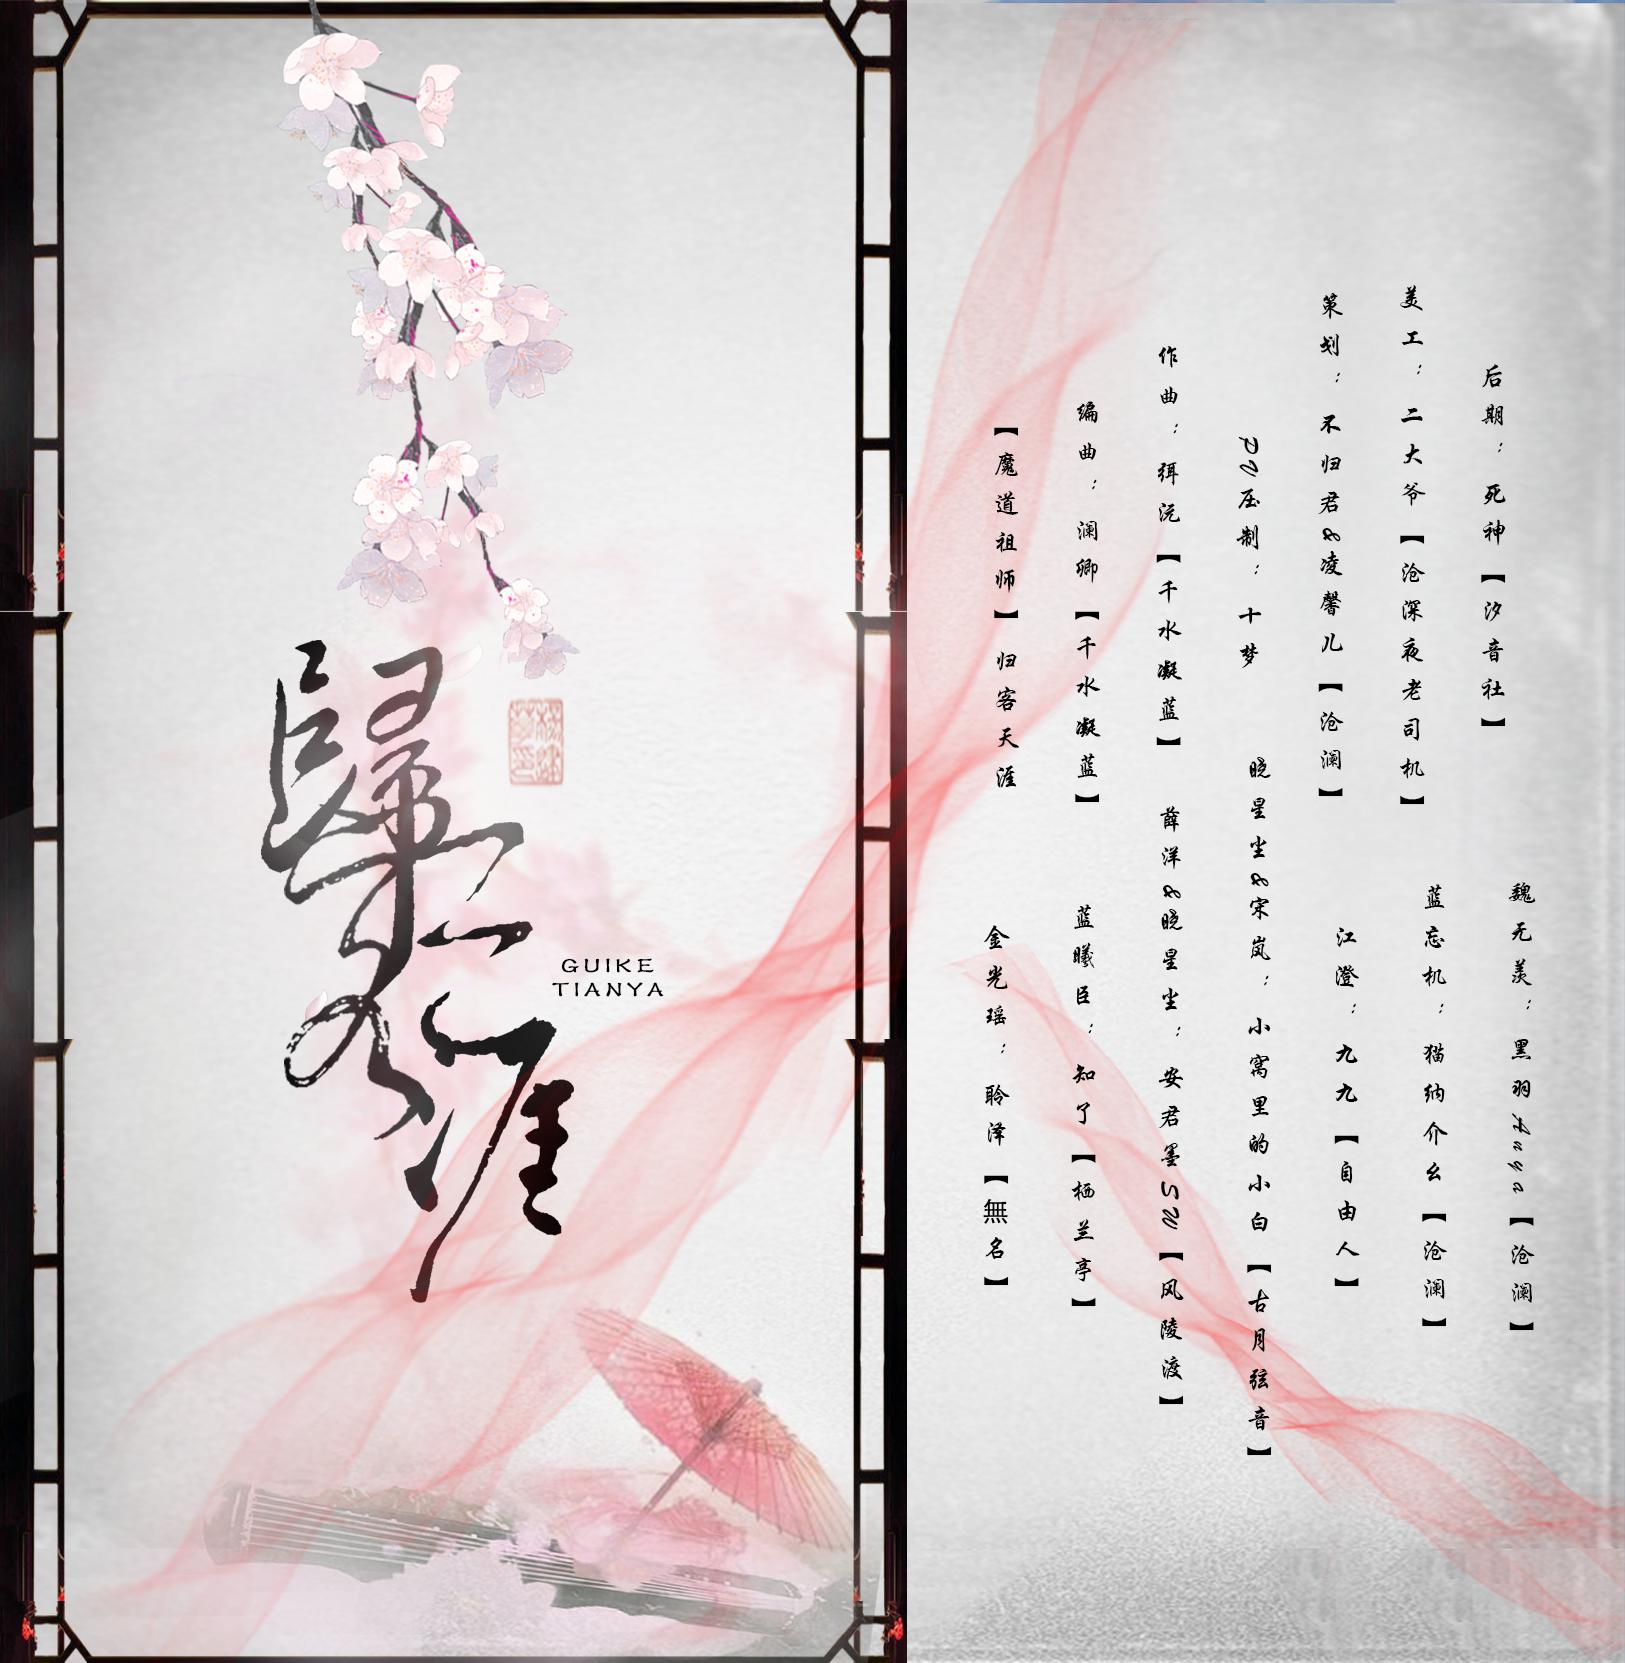 歸客天涯
GUIKE
TIANYA
【魔道祖师】归客天涯
编曲：澜卿【千水凝蓝】
作曲：弭沅【千水凝蓝】
PV压制：十梦
策划：不归君&凌馨儿【沧澜】
美工：二大爷【沧深夜老司机】
后期：死神【汐音社】
金光瑶：聆泽【無名】
蓝曦臣：知了【栖兰亭】
薛洋&晓星尘：安君墨SW【风陵渡】
晓星尘&宋岚：小窝里的小白【古月弦音】
江澄：九九【自由人】
蓝忘机：猫纳介幺【沧澜】
魏无羡：黑羽【沧澜】